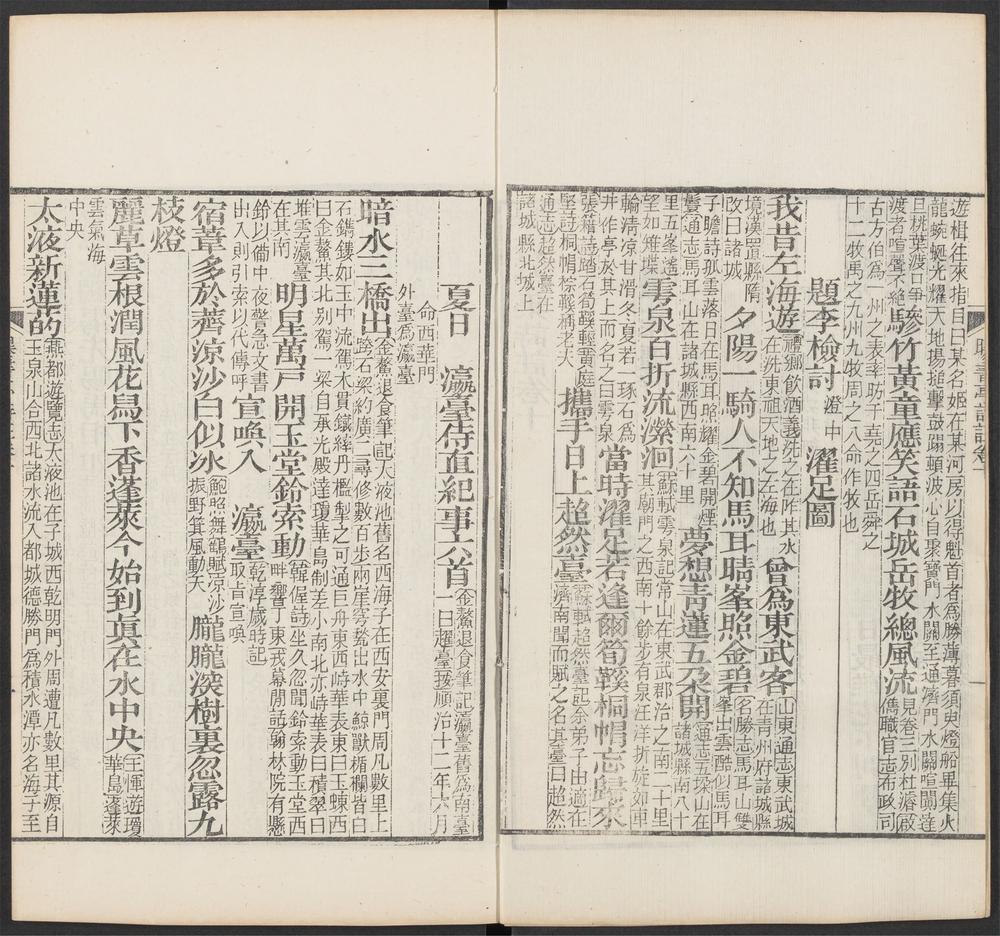 遊楫往來指目曰某名姬在某河房以得魁首者爲勝薄暮須臾燈船畢集火
龍蜿蜒光耀天地揚搥擊鼓蹋頓波心自聚寶門水關至通濟門水關喧闐達
旦桃葉渡口爭
渡者喧聲不絕 驂竹黃童應笑語石城岳牧總風流 見卷三別杜濬啟
僞職官志布政司
古方伯爲一州之表率昉于堯之四岳舜之
十二牧禹之九州九牧周之八命作牧也
題李檢討 澄中 濯足圖
我昔左海遊 禮鄉飲酒義洗之在阼其水
在洗東祖天地之左海也 曾爲東武客 山東通志東武城
在青州府諸城縣
境漢置縣隋
改曰諸城 夕陽一騎人不知馬耳晴峯照金碧 名勝志馬耳山雙
峯出雲酷似馬耳
子瞻詩孤雲落日在馬耳照耀金碧開煙
鬟通志馬耳山在諸城縣西南六十里 夢想靑蓮五朶開 通志五垜山在
諸城縣南八十
里五峯遙
望如雉堞 雲泉百折流濴洄 蘇軾雩泉記常山在東武郡治之南二十里
其廟門之西南十餘步有泉汪洋折旋如車
輪清凉甘滑冬夏若一琢石爲
井作亭於其上而名之曰雩泉 當時濯足若逢爾筍鞵桐帽忘歸來
張籍詩踏石筍鞵輕黃庭
堅詩桐帽棕鞵稱老夫 攜手日上超然臺 蘇軾超然臺記余弟子由適在
濟南聞而賦之名其臺曰超然
通志超然臺在
諸城縣北城上
夏日 瀛臺侍直紀事六首 金鰲退食筆記瀛臺舊爲南臺
一曰趯臺陂順治十二年六月
命西華門
外臺爲瀛臺
暗水三橋出 金鰲退食筆記太液池舊名西海子在西安裏門周凡數里上
跨石梁約廣二尋修數百步兩崖穹甃出水中鯨獸楯欄皆白
石鐫鏤如玉中流駕木貫鐵絳丹檻掣之可通巨舟東西峙華表東曰玉蝀西
曰金鰲其北別駕一梁自承光殿達瓊華島制差小南北亦峙華表曰積翠曰
堆雲瀛臺
在其南 明星萬戸開玉堂鈴索動 韓偓詩坐久忽聞鈴索動玉堂西
畔響丁東戎幕閒話翰林院有懸
鈴以備中夜警急文書
出入則引索以代傳呼 宣喚入 瀛臺 乾淳歲時記
取㫖宣喚
宿葦多於薺凉沙白似冰 鮑照舞鶴賦凉沙
振野箕風動天 朧朧深樹裏忽露九
枝燈
麗草雲根潤風花鳥下香蓬萊今始到眞在水中央 王惲遊瓊
華島蓬萊
雲氣海
中央
太液新蓮的 燕都遊覽志太液池在子城西乾明門外周遭凡數里其源自
玉泉山合西北諸水流入都城德勝門爲積水潭亦名海子至